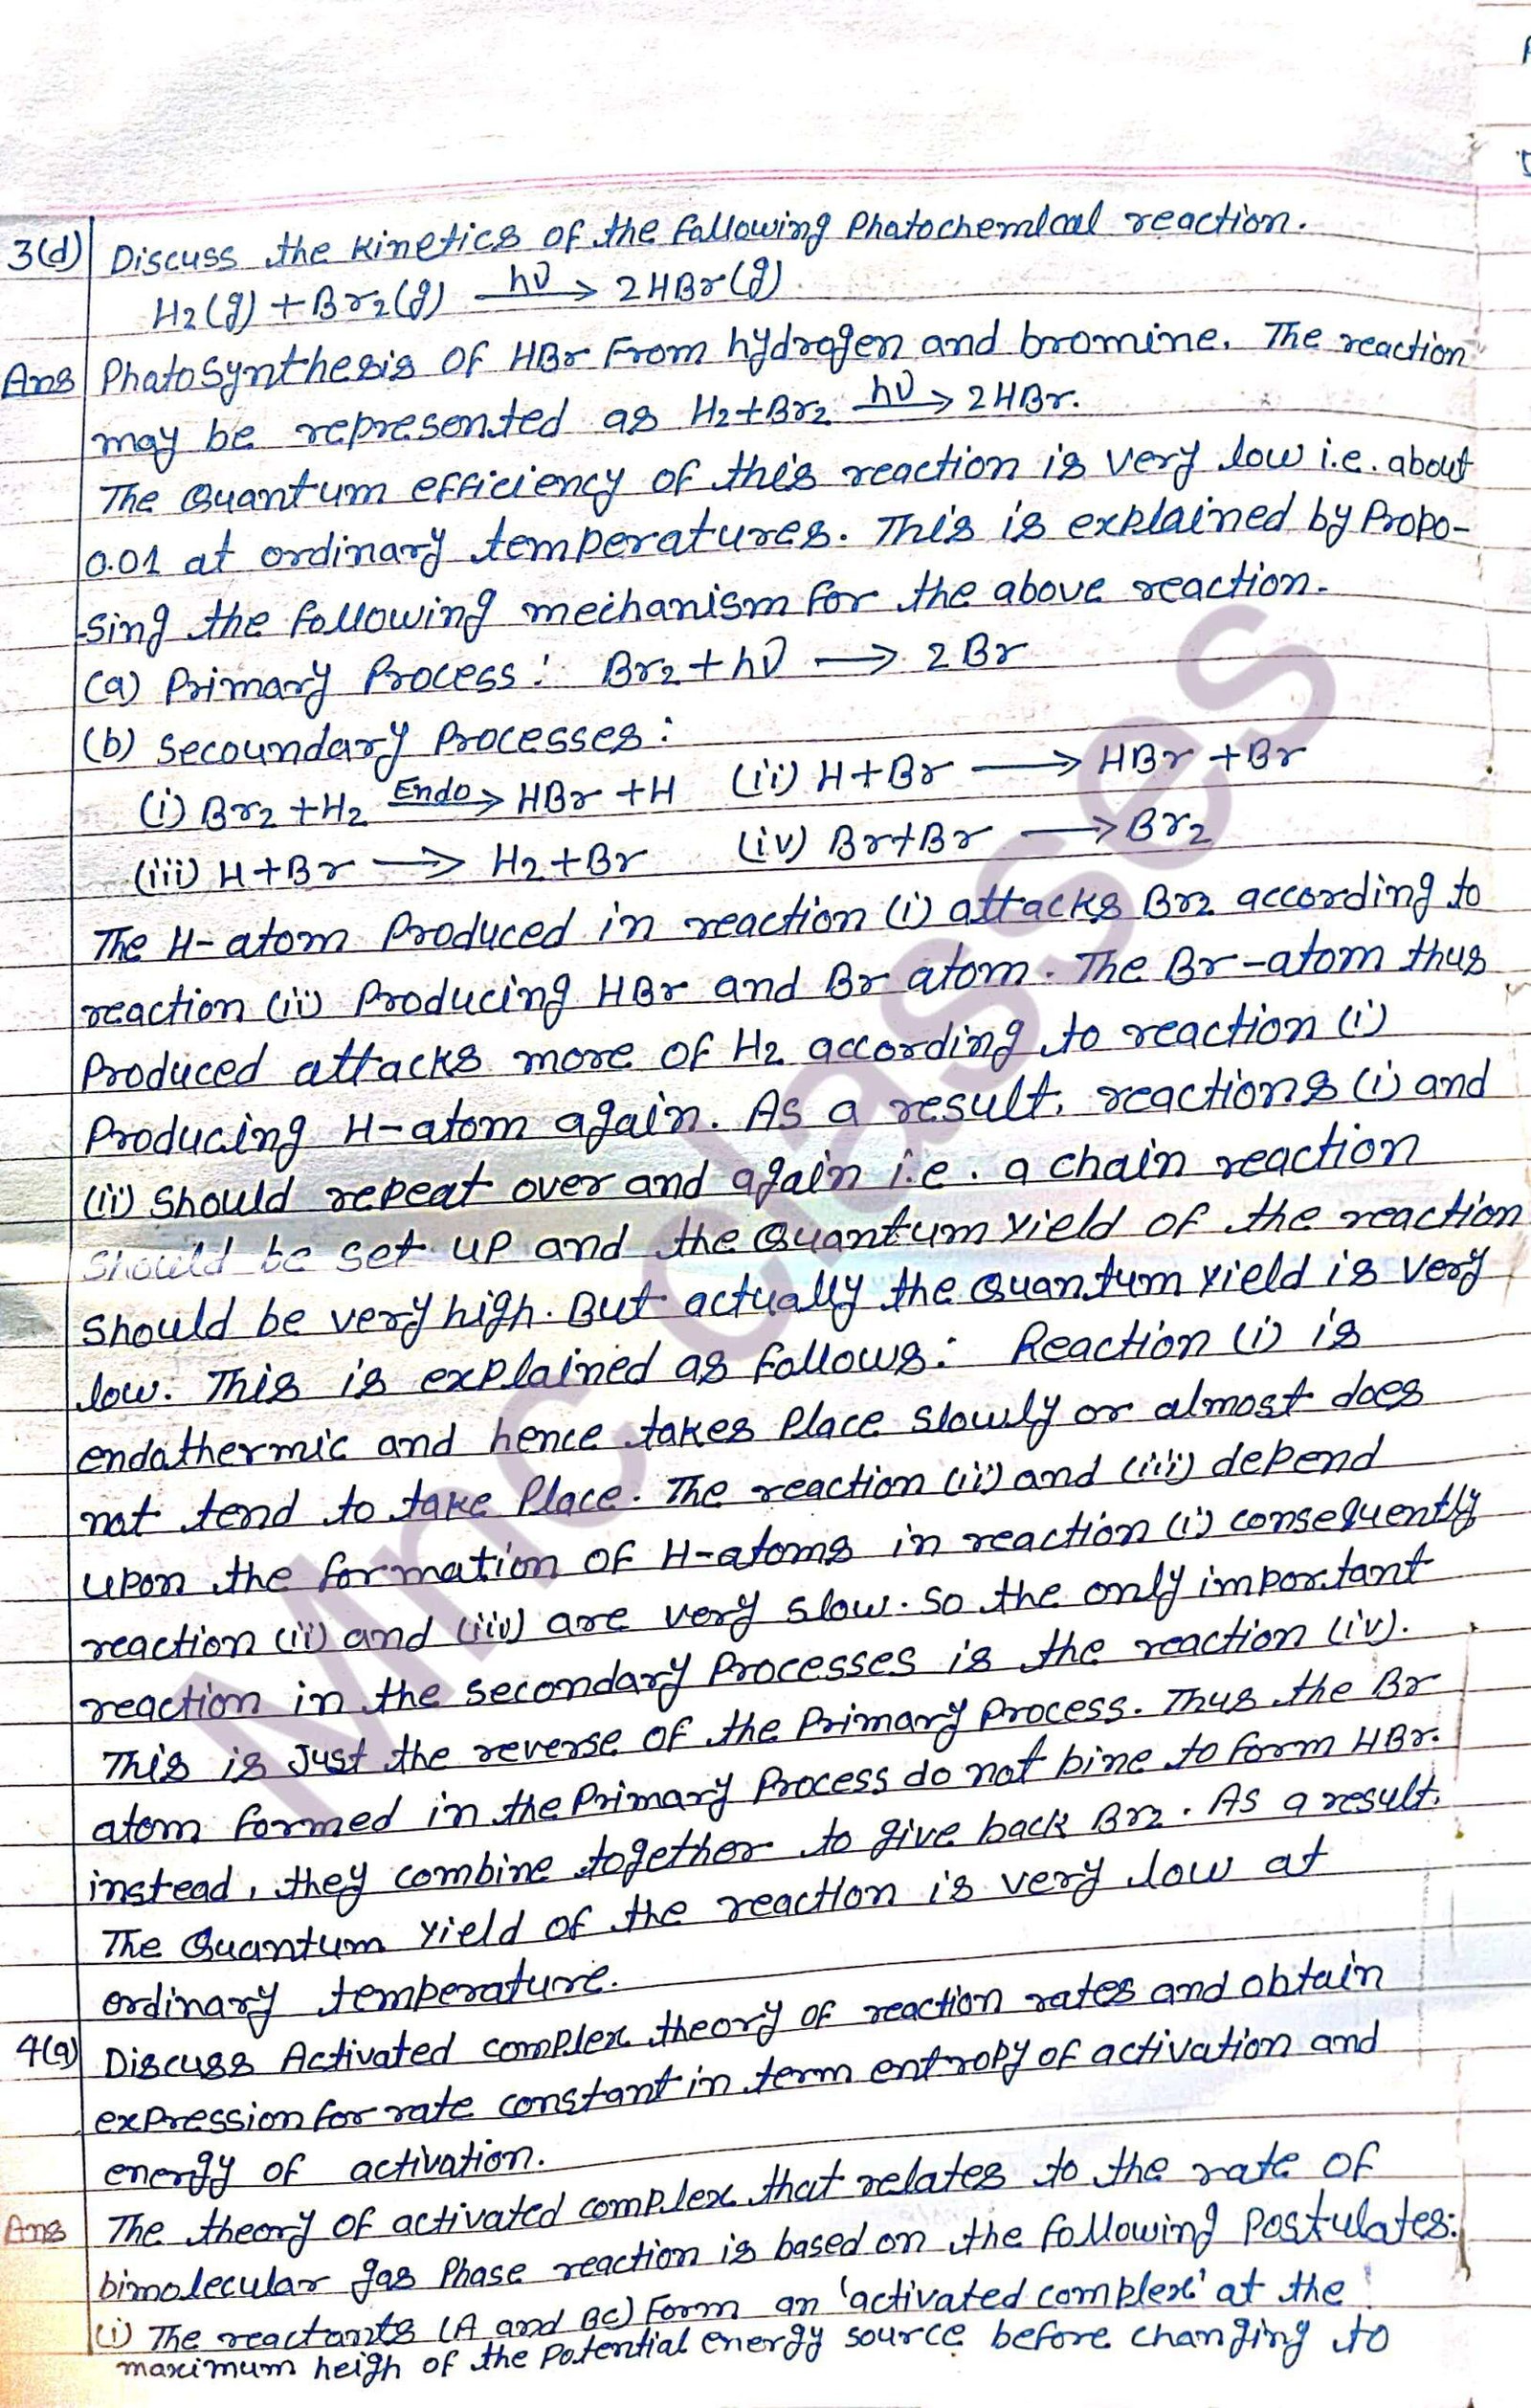 3(d) Discuss the kinetics of the fallowing Phatochemical reaction.
H2(g) + Br2(g) —hν→ 2HBr(g)
Ans PhatoSynthesis of HBr From hydrogen and bromine. The reaction
may be represented as H2+Br2 —hν→ 2HBr.
The Quantum efficiency of this reaction is very low i.e. about
0.01 at ordinary temperatures. This is explained by Propo-
-sing the following mechanism for the above reaction.
(a) Primary Process: Br2 + hν → 2Br
(b) Secoundary Processes:
(i) Br2 + H2 —Endo→ HBr + H (ii) H + Br → HBr + Br
(iii) H + Br → H2 + Br (iv) Br+Br → Br2
The H-atom Produced in reaction (i) attacks Br2 according to
reaction (ii) Producing HBr and Br atom. The Br-atom thus
Produced attacks more of H2 according to reaction (i)
Producing H-atom again. As a result, reactions (i) and
(ii) Should repeat over and again i.e. a chain reaction
Should be set up and the Quantum yield of the reaction
Should be very high. But actually the Quantum yield is very
low. This is explained as follows: Reaction (i) is
endothermic and hence takes Place Slowly or almost does
not tend to take Place. The reaction (ii) and (iii) depend
upon the formation of H-atoms in reaction (i) consequently
reaction (ii) and (iii) are very slow. So the only important
reaction in the secondary Processes is the reaction (iv).
This is Just the reverse of the Primary Process. Thus the Br
atom formed in the Primary Process do not bine to form HBr.
instead, they combine together to give back Br2. As a result,
The Quantum yield of the reaction is very low at
ordinary temperature.
4(a) Discuss Activated complex theory of reaction rates and obtain
expression for rate constant in term entropy of activation and
energy of activation.
Ans The theory of activated complex that relates to the rate of
bimolecular gas Phase reaction is based on the following Postulates:
(i) The reactants (A and BC) Form an 'activated complex' at the
maximum heigh of the Potential energy source before changing to
Mnc classes